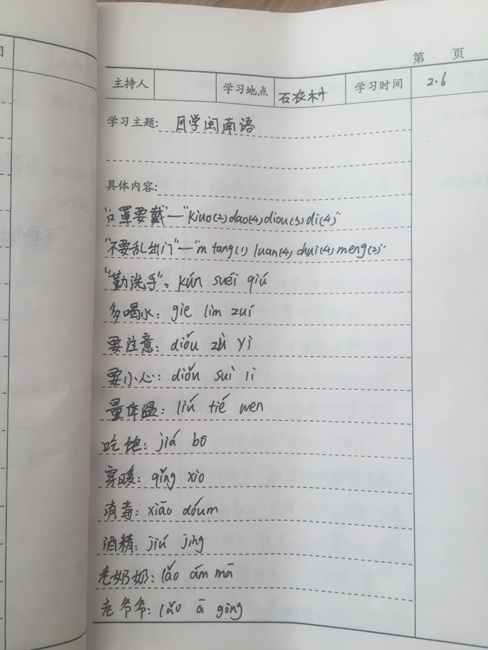 第 页
主持人 学习地点 石农村 学习时间 2.6
学习主题: 自学闽南语
具体内容:
"口罩要戴"—"kiuo(2)dao(4)diou(3)di(4)"
"不要乱出门"—"m tang(1) luan(4) chui(4) meng(2)"
"勤洗手": kún suěi qiú
多喝水: gie lim zuí
要注意: diǒu zù yì
要小心: diǒu suì lì
量体温: liú tié wen
吃饱: jiá bō
穿暖: qǐng xio
消毒: xiāo dóum
酒精: jiú jing
老奶奶: lǎo ám mā
老爷爷: lǎo ā gōng